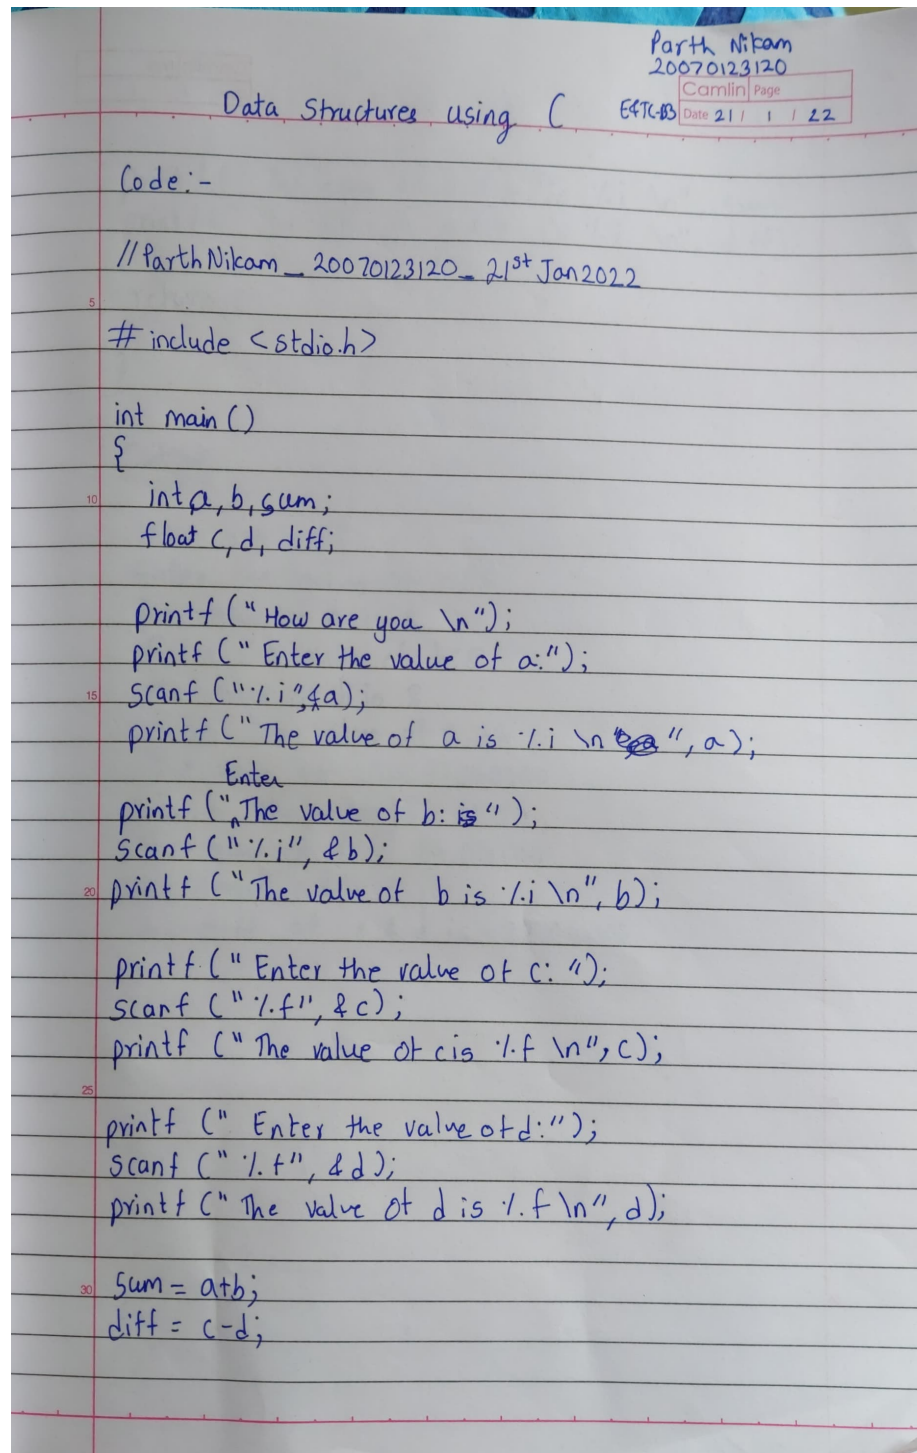 Parth Nikam
20070123120
Camlin Page
Data Structures using C E&TC-B3 Date 21 / 1 / 22
Code:-
//Parth Nikam_20070123120_21st Jan2022
5
# include <stdio.h>
int main ()
{
10 int a, b, sum;
float c, d, diff;
printf ("How are you \n");
printf (" Enter the value of a:");
15 Scanf ("%i",&a);
printf (" The value of a is %i \n ", a);
Enter
printf ("The value of b: ");
Scanf (" %i", &b);
20 printf ("The value of b is %i \n", b);
printf (" Enter the value of c: ");
Scanf (" %f", &c);
printf (" The value of c is %f \n", c);
25
printf (" Enter the value of d:");
Scanf (" %f", &d);
printf (" The value of d is %f \n", d);
30 Sum = a+b;
diff = c-d;